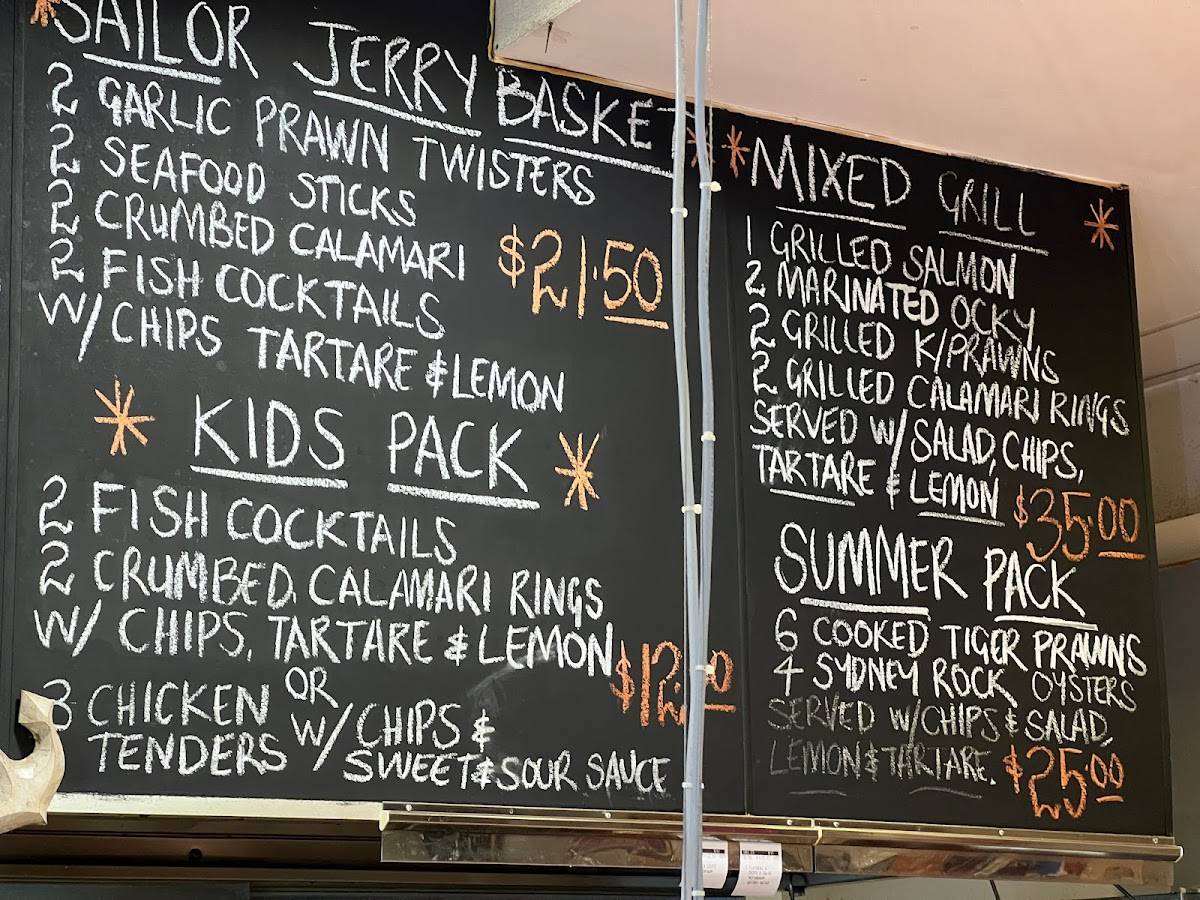 SAILOR JERRY BASKET
2 GARLIC PRAWN TWISTERS
2 SEAFOOD STICKS
2 CRUMBED CALAMARI
2 FISH COCKTAILS
W/ CHIPS TARTARE & LEMON
$21.50
KIDS PACK
2 FISH COCKTAILS
2 CRUMBED CALAMARI RINGS
W/ CHIPS, TARTARE & LEMON
OR
3 CHICKEN TENDERS W/ CHIPS &
SWEET & SOUR SAUCE
MIXED GRILL
1 GRILLED SALMON
2 MARINATED OCKY
2 GRILLED K/PRAWNS
2 GRILLED CALAMARI RINGS
SERVED W/ SALAD, CHIPS,
TARTARE & LEMON $35.00
SUMMER PACK
6 COOKED TIGER PRAWNS
4 SYDNEY ROCK OYSTERS
SERVED W/CHIPS & SALAD,
LEMON & TARTARE. $25.00